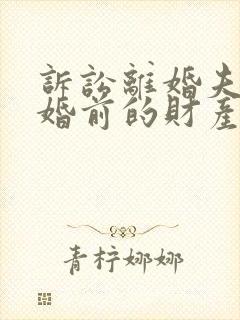 訴訟離婚夫
婚前的財產
青柠娜娜